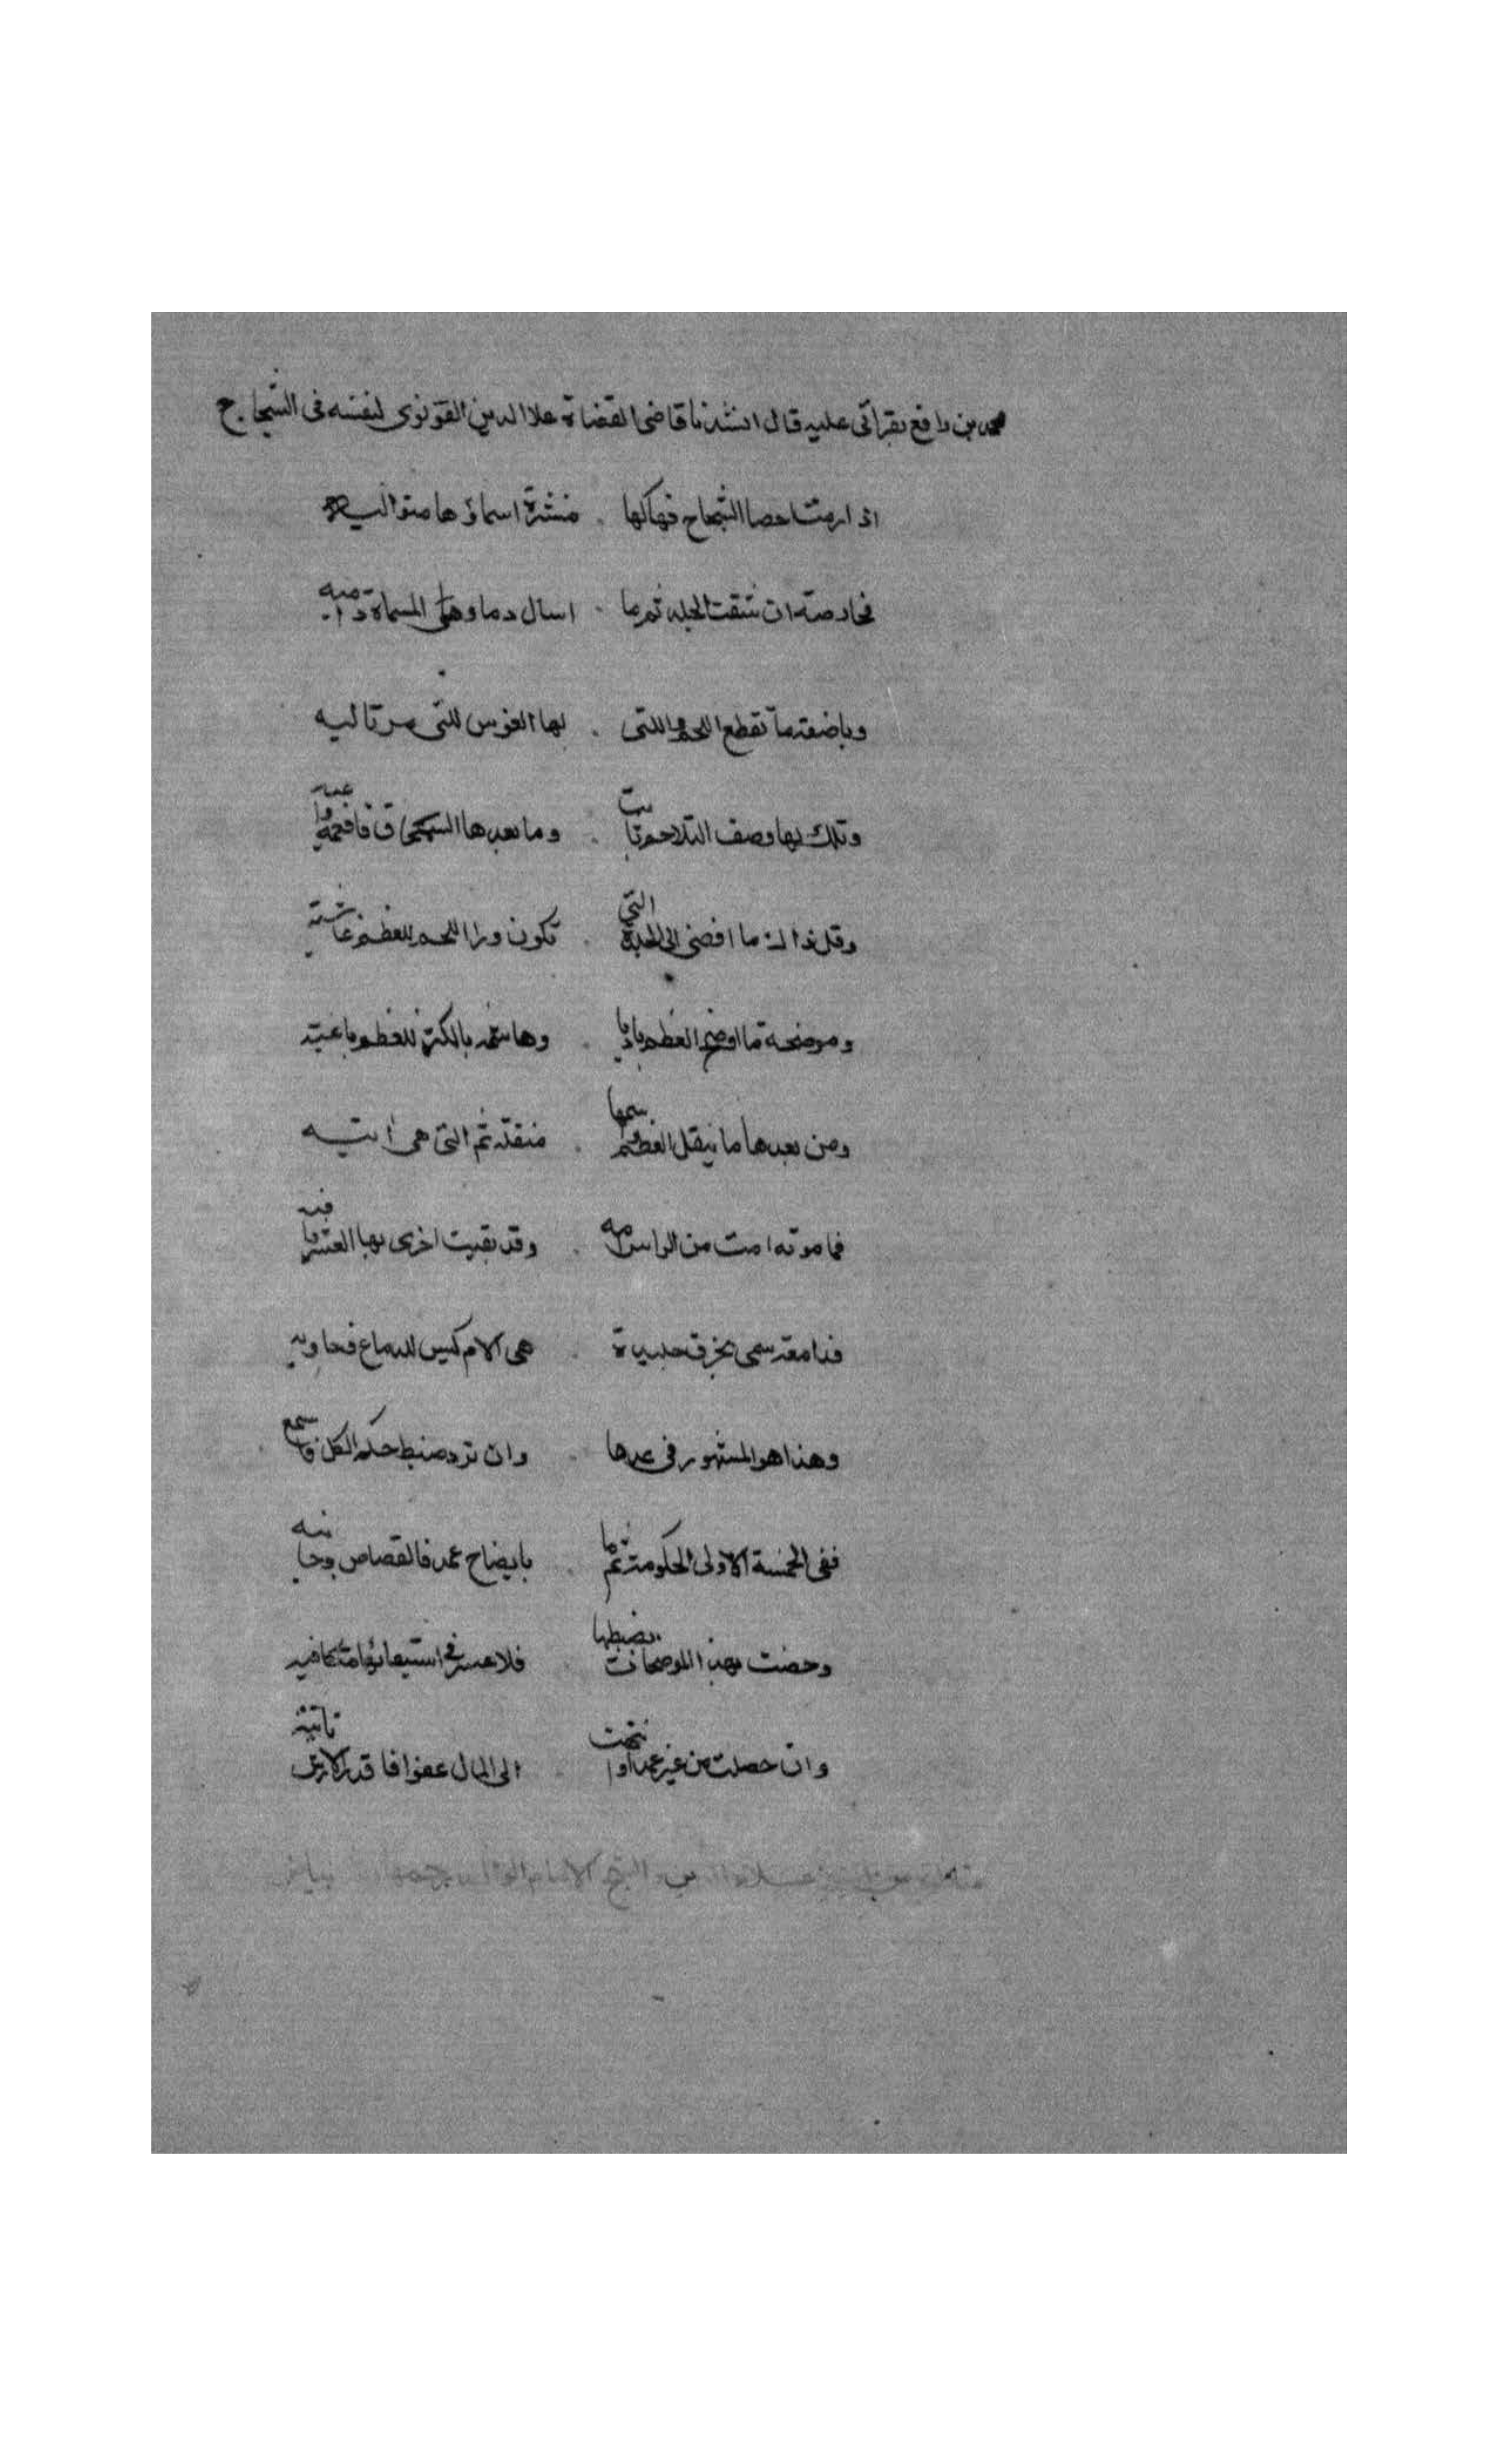 محمد بن رافع بقراتى عليه قال انشدنا قاضى القضاة علا الدين القونوى لنفسه فى الشجاج
اذا رمت احصا الشجاج فهاكها . منشرة اسماؤها متواليه
فخارصة ان شقت الجلد ثم ما . اسال دما وهى المسماة دامية
وباضعة ما تقطع اللحم واللتى . لها الغوص للتى مرتاليه
وتلك بها وصف التلاحم ثابت . وما بعدها السمحاق فافهمه واعيه
وقل ذاك ما افضى الى الجلدة التى . تكون ورا اللحم للعظم غاشية
وموضحة ما اوضح العظم باديا . وهاشمة بالكسر للعظم باغية
ومن بعدها ما ينقل العظم وسمها . منقلة ثم التى هى اتيه
فمامومة امت من الراس امه . وقد بقيت اخرى بها العشر وافيه
فدامغة سمى بخرق جليدة . هى كالام كيس للدماغ فحاويه
وهذا هو المشهور فى عدها . وان ترد ضبط حكم الكل فاسمع
ففى الخمسة الاولى الحكومة ثم ما . بايضاح عمد فالقصاص وجانبه
وخصت بهذا الموضحات بضبطها . فلا عسر فى استيفائها متكافيه
وان حصلت من غير عمد او انتحت . الى المال عفوا فا قدر الارش ثانية